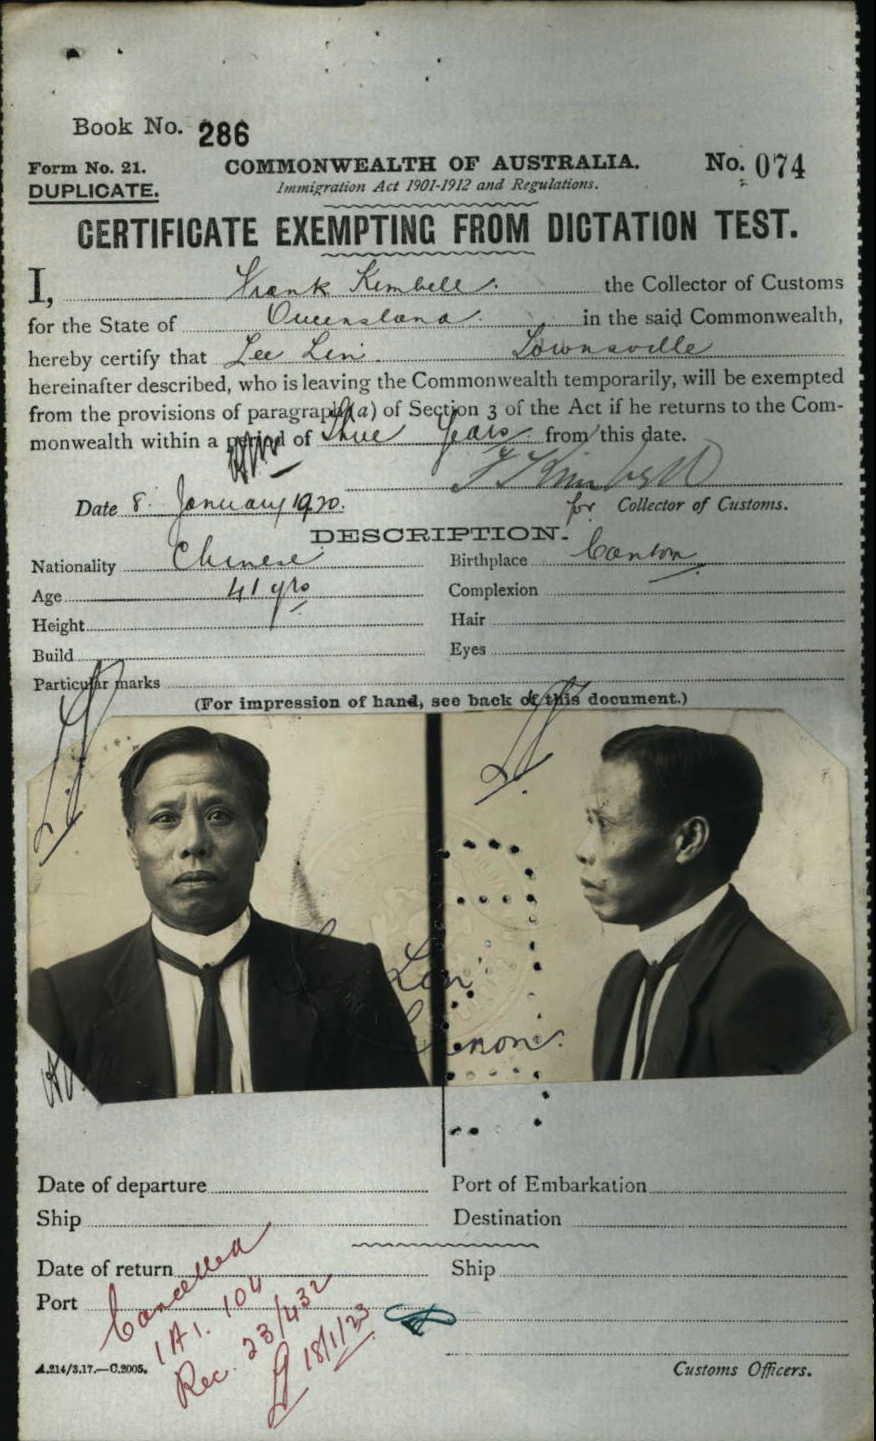 Book No. 286
Form No. 21. COMMONWEALTH OF AUSTRALIA. No. 074
DUPLICATE. Immigration Act 1901-1912 and Regulations.
CERTIFICATE EXEMPTING FROM DICTATION TEST.
I, Frank Kimbell. the Collector of Customs
for the State of Queensland. in the said Commonwealth,
hereby certify that Lee Lin. Townsville
hereinafter described, who is leaving the Commonwealth temporarily, will be exempted
from the provisions of paragraph (a) of Section 3 of the Act if he returns to the Com-
monwealth within a period of Three Years from this date.
F Kimbell
Date 8. January 1920. for Collector of Customs.
DESCRIPTION.
Nationality Chinese Birthplace Canton
Age 41 yrs Complexion
Height Hair
Build Eyes
Particular marks
(For impression of hand, see back of this document.)
Lin
Date of departure Port of Embarkation
Ship Destination
Date of return Ship
Port
Cancelled
1A1. 104
Rec. 23/432
18/1/23
A.214/3.17.—C.2005. Customs Officers.